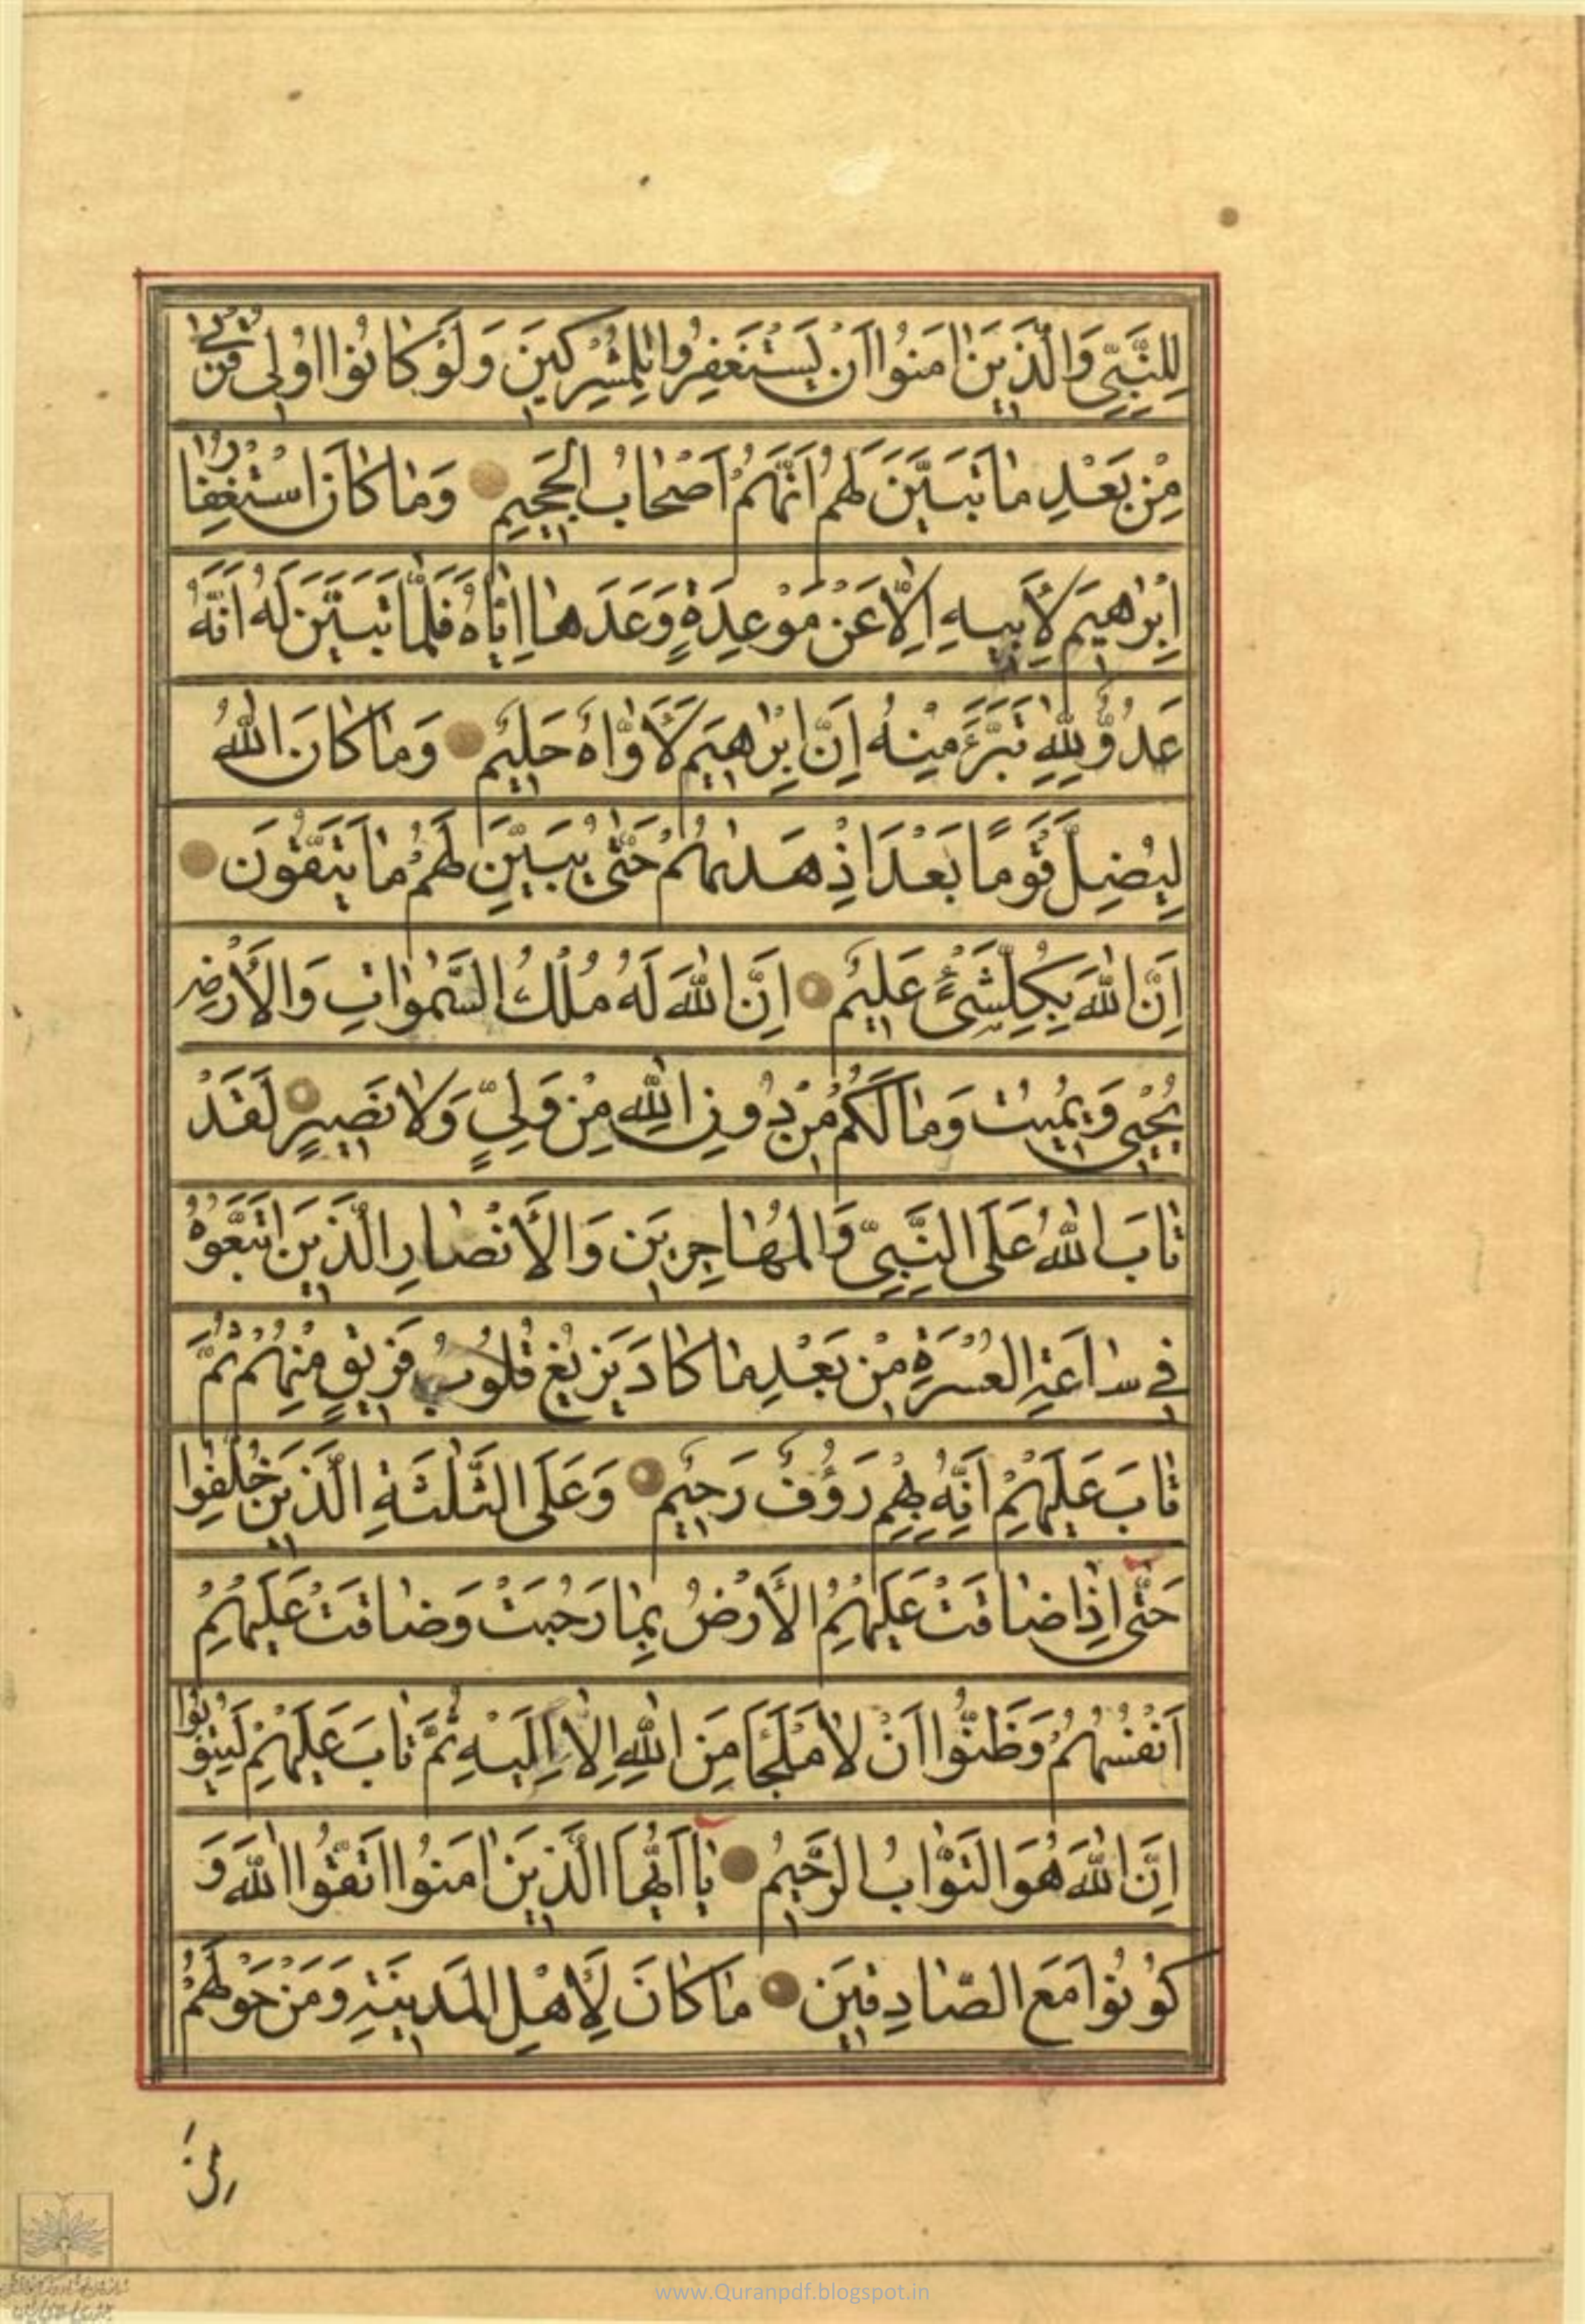 لِلنَّبِيِّ وَالَّذِينَ اٰمَنُوا اَنْ يَسْتَغْفِرُوا لِلْمُشْرِكِينَ وَلَوْ كَانُوا اُولِى قُرْبٰى
مِنْ بَعْدِ مَا تَبَيَّنَ لَهُمْ اَنَّهُمْ اَصْحَابُ الْجَحِيمِ وَمَا كَانَ اسْتِغْفَارُ
اِبْرٰهِيمَ لِاَبِيهِ اِلَّا عَنْ مَوْعِدَةٍ وَعَدَهَا اِيَّاهُ فَلَمَّا تَبَيَّنَ لَهُ اَنَّهُ
عَدُوٌّ لِلّٰهِ تَبَرَّءَ مِنْهُ اِنَّ اِبْرٰهِيمَ لَاَوَّاهٌ حَلِيمٌ وَمَا كَانَ اللّٰهُ
لِيُضِلَّ قَوْمًا بَعْدَ اِذْ هَدٰيهُمْ حَتّٰى يُبَيِّنَ لَهُمْ مَا يَتَّقُونَ
اِنَّ اللّٰهَ بِكُلِّ شَىْءٍ عَلِيمٌ اِنَّ اللّٰهَ لَهُ مُلْكُ السَّمٰوَاتِ وَالْاَرْضِ
يُحْيِى وَيُمِيتُ وَمَا لَكُمْ مِنْ دُونِ اللّٰهِ مِنْ وَلِيٍّ وَلَا نَصِيرٍ لَقَدْ
تَابَ اللّٰهُ عَلَى النَّبِيِّ وَالْمُهَاجِرِينَ وَالْاَنْصَارِ الَّذِينَ اتَّبَعُوهُ
فِى سَاعَةِ الْعُسْرَةِ مِنْ بَعْدِ مَا كَادَ يَزِيغُ قُلُوبُ فَرِيقٍ مِنْهُمْ ثُمَّ
تَابَ عَلَيْهِمْ اِنَّهُ بِهِمْ رَؤُفٌ رَحِيمٌ وَعَلَى الثَّلٰثَةِ الَّذِينَ خُلِّفُوا
حَتّٰى اِذَا ضَاقَتْ عَلَيْهِمُ الْاَرْضُ بِمَا رَحُبَتْ وَضَاقَتْ عَلَيْهِمْ
اَنْفُسُهُمْ وَظَنُّوا اَنْ لَا مَلْجَاَ مِنَ اللّٰهِ اِلَّا اِلَيْهِ ثُمَّ تَابَ عَلَيْهِمْ لِيَتُوبُوا
اِنَّ اللّٰهَ هُوَ التَّوَّابُ الرَّحِيمُ يَا اَيُّهَا الَّذِينَ اٰمَنُوا اتَّقُوا اللّٰهَ وَ
كُونُوا مَعَ الصَّادِقِينَ مَا كَانَ لِاَهْلِ الْمَدِينَةِ وَمَنْ حَوْلَهُمْ
مِنَ
www.Quranpdf.blogspot.in